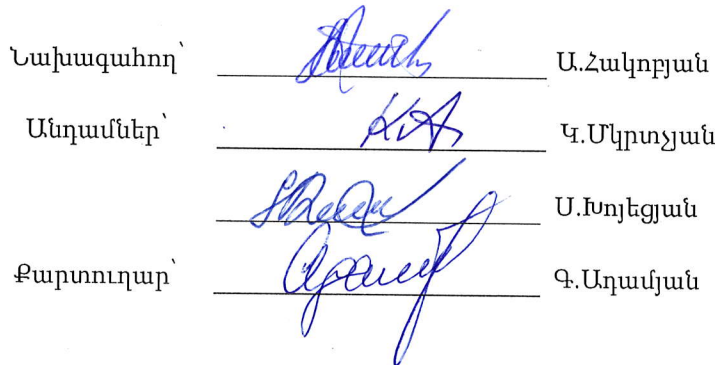 Նախագահող՝ Ա.Հակոբյան
Անդամներ՝ Կ.Մկրտչյան
Ս.Խոյեցյան
Քարտուղար՝ Գ.Ադամյան